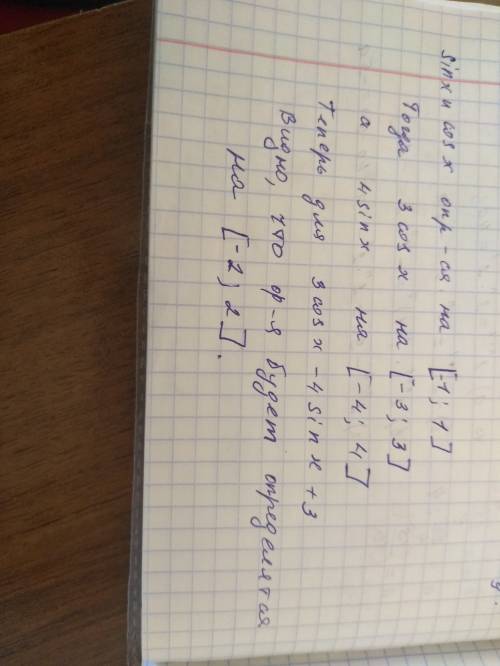 sinx и cosx опр-ся на [-1; 1]
Тогда 3cosx на [-3; 3]
а 4sinx на [-4; 4]
Теперь для 3cosx - 4sinx + 3
Видно, что ф-я будет определятся
на [-2; 2].